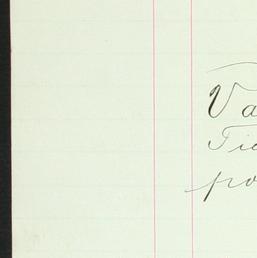 Va
Tic
po